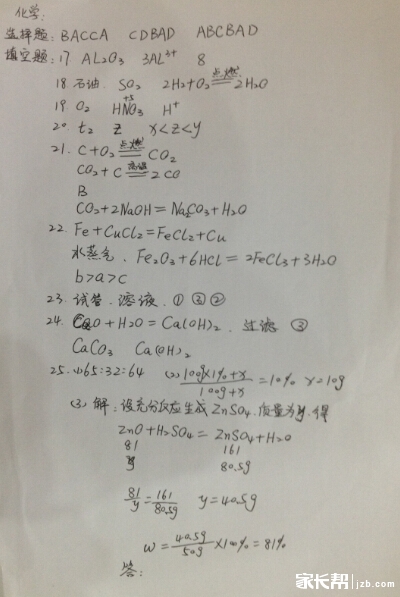 化学:
选择题: BACCA CDBAD ABCBAD
填空题: 17 AL₂O₃ 3AL³⁺ 8
18 石油. SO₂ 2H₂+O₂ 点燃 2H₂O
19 O₂ HNO₃ +5 H⁺
20 t₂ Z X<Z<Y
21. C+O₂ 点燃 CO₂
CO₂+C 高温 2CO
B
CO₂+2NaOH=Na₂CO₃+H₂O
22. Fe+CuCl₂=FeCl₂+Cu
水蒸气. Fe₂O₃+6HCl=2FeCl₃+3H₂O
b>a>c
23. 试管. 溶液. ① ③ ②
24. CaO+H₂O=Ca(OH)₂. 过滤 ③
CaCO₃ Ca(OH)₂
25. (1) 65:32:64 (2) (100g×1%+x)/(100g+x)=10% x=10g
(3) 解: 设充分反应生成ZnSO₄质量为y. 得
ZnO+H₂SO₄=ZnSO₄+H₂O
81 161
y 80.5g
81/y=161/80.5g y=40.5g
w=40.5g/50g×100%=81%
答:
家长帮 jzb.com